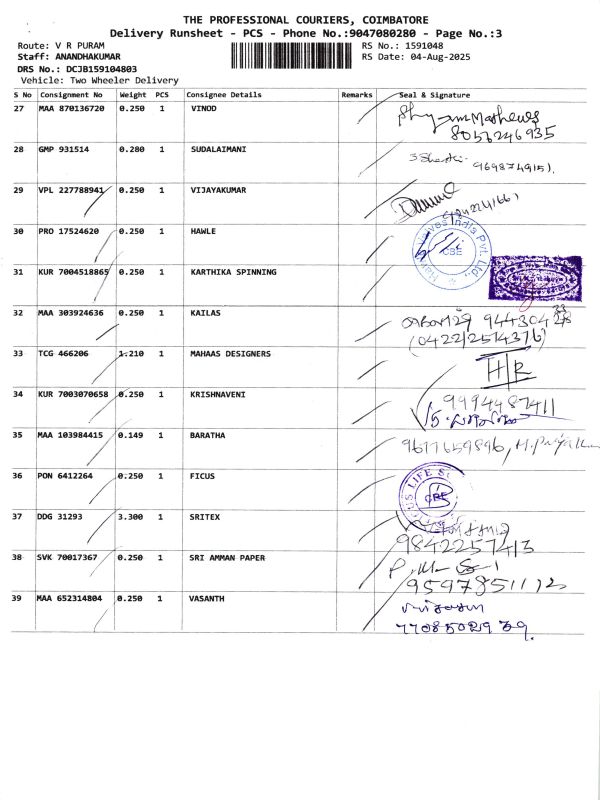 THE PROFESSIONAL COURIERS, COIMBATORE
Delivery Runsheet - PCS - Phone No.:9047080280 - Page No.:3
Route: V R PURAM
RS No.: 1591048
Staff: ANANDHAKUMAR
RS Date: 04-Aug-2025
DRS No.: DCJB159104803
Vehicle: Two Wheeler Delivery
S No Consignment No Weight PCS Consignee Details Remarks Seal & Signature
27 MAA 870136720 0.250 1 VINOD
8056246935
28 GMP 931514 0.280 1 SUDALAIMANI
29 VPL 227788941 0.250 1 VIJAYAKUMAR
30 PRO 17524620 0.250 1 HAWLE
CBE
31 KUR 7004518865 0.250 1 KARTHIKA SPINNING
32 MAA 303924636 0.250 1 KAILAS
(0422/2574376)
33 TCG 466206 1.210 1 MAHAAS DESIGNERS
H/R
34 KUR 7003070658 0.250 1 KRISHNAVENI
9994487411
35 MAA 103984415 0.149 1 BARATHA
9677659896,
36 PON 6412264 0.250 1 FICUS
CBE
37 DDG 31293 3.300 1 SRITEX
9842257413
38 SVK 70017367 0.250 1 SRI AMMAN PAPER
9597851112
39 MAA 652314804 0.250 1 VASANTH